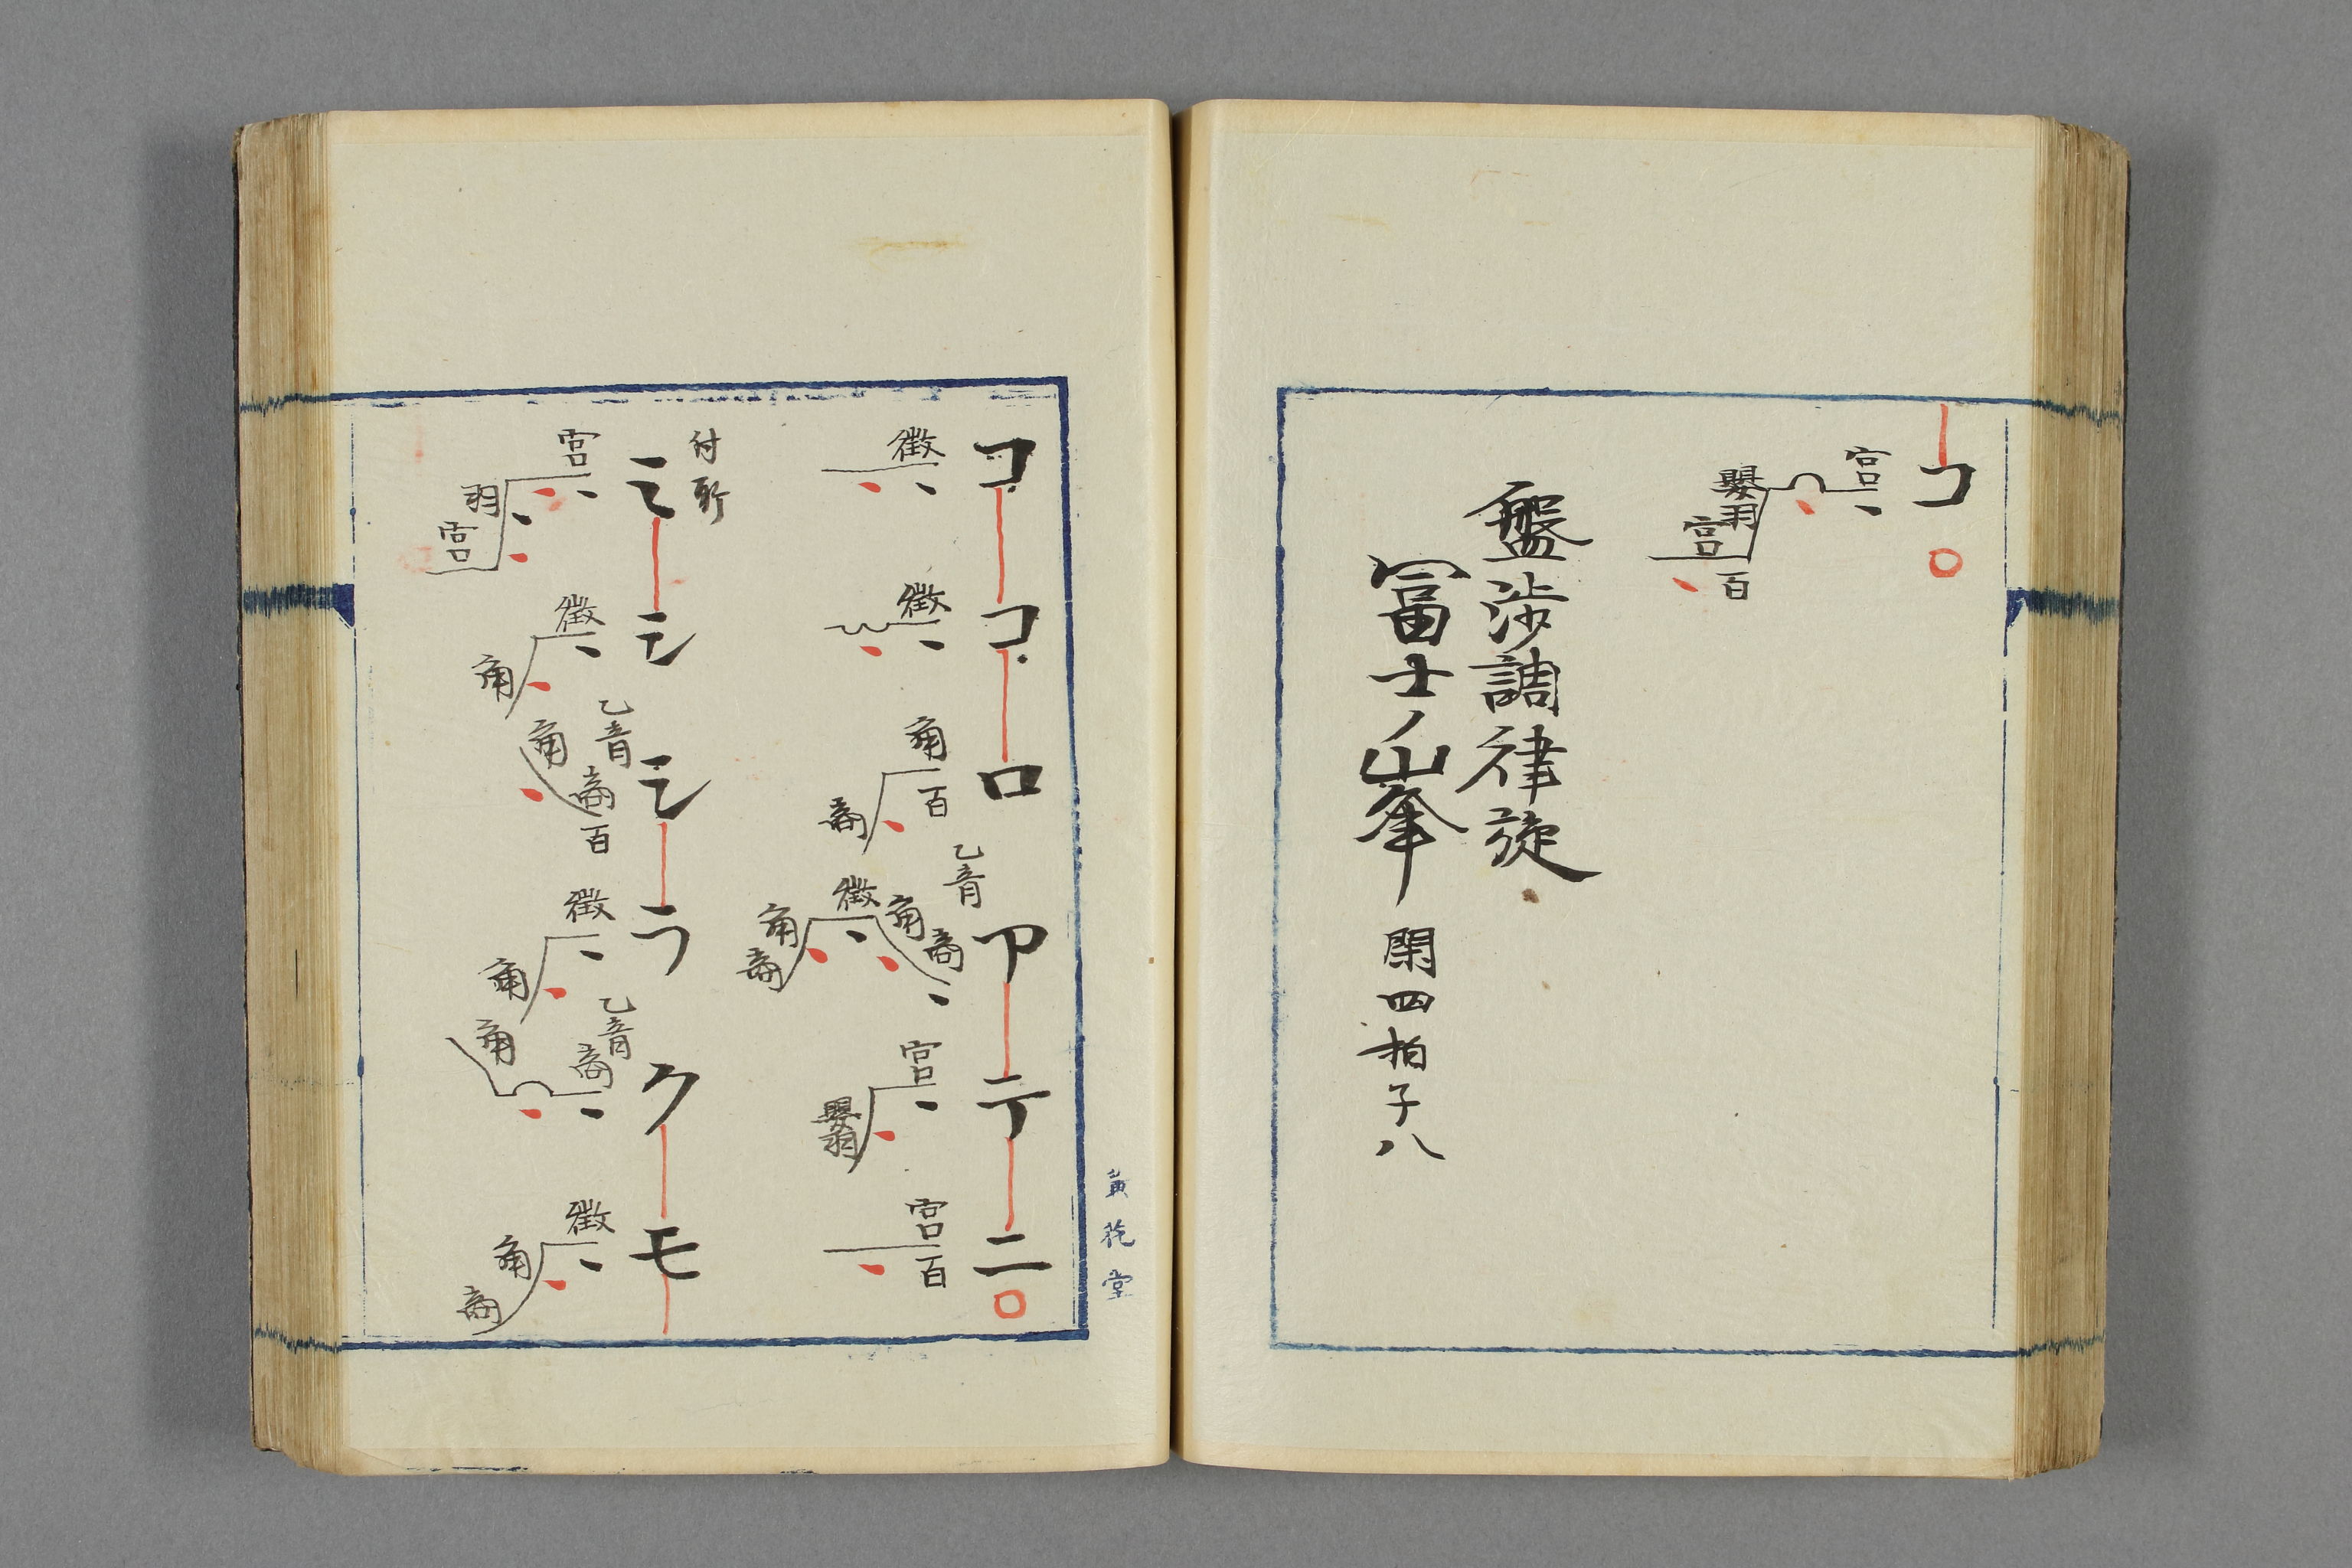 コ
宮 嬰羽 宮 百
盤渉調律旋
冨士ノ峯 閑四拍子八
堂
コココロアテニ
徴 徴 角 百 商 乙音 商 角 徴 角 商 宮 嬰羽 宮 百
付所
ミシシラクモ
宮 羽 宮 徴 角 乙音 角 商 百 徴 角 乙音 商 角 徴 角 商